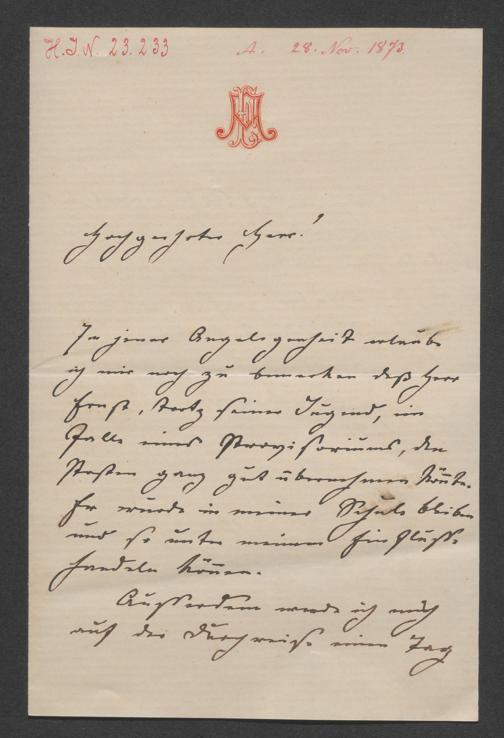 H.I.N. 23.233 A. 28. Nov. 1873.
Hochgeehrter Herr!
In jener Angelegenheit erlaube
ich mir noch zu bemerken daß Herr
Ernst, trotz seiner Jugend, im
Falle eines Provisoriums, den
Posten ganz gut übernehmen könnte.
Er würde in meiner Schule bleiben
und so unter meinem Einflusse
handeln können.
Ausserdem werde ich mich
auf der Durchreise einen Tag